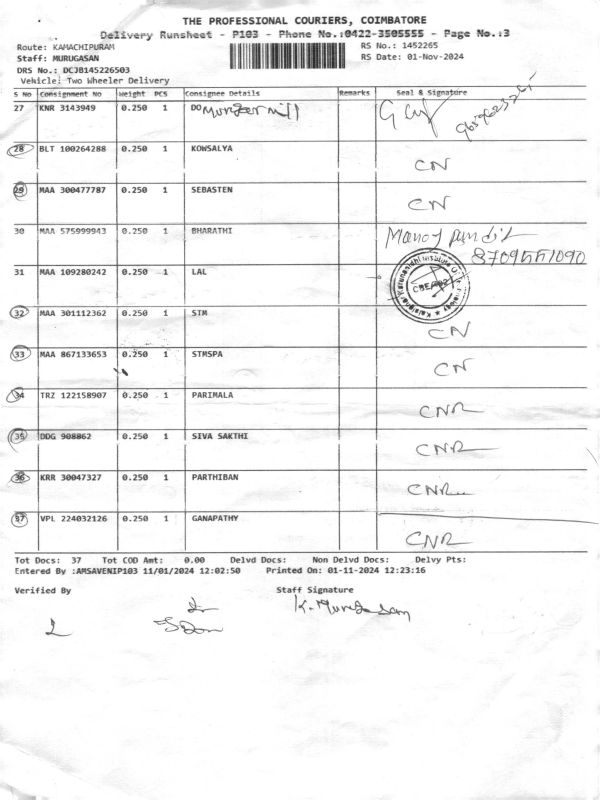 THE PROFESSIONAL COURIERS, COIMBATORE
Delivery Runsheet - P103 - Phone No.:0422-3505555 - Page No.:3
Route: KAMACHIPURAM RS No.: 1452265
Staff: MURUGASAN RS Date: 01-Nov-2024
DRS No.: DCJB145226503
Vehicle: Two Wheeler Delivery
S No Consignment No Weight PCS Consignee Details Remarks Seal & Signature
27 KNR 3143949 0.250 1 DO
28 BLT 100264288 0.250 1 KOWSALYA
CN
29 MAA 300477787 0.250 1 SEBASTEN
CN
30 MAA 575999943 0.250 1 BHARATHI Manoj pandit
8709551090
31 MAA 109280242 0.250 1 LAL
32 MAA 301112362 0.250 1 STM
CN
33 MAA 867133653 0.250 1 STMSPA
CN
34 TRZ 122158907 0.250 1 PARIMALA
CNR
35 DDG 908862 0.250 1 SIVA SAKTHI
CNR
36 KRR 30047327 0.250 1 PARTHIBAN
CNR
37 VPL 224032126 0.250 1 GANAPATHY
CNR
Tot Docs: 37 Tot COD Amt: 0.00 Delvd Docs: Non Delvd Docs: Delvy Pts:
Entered By :AMSAVENIP103 11/01/2024 12:02:50 Printed On: 01-11-2024 12:23:16
Verified By Staff Signature
K. Murugasam